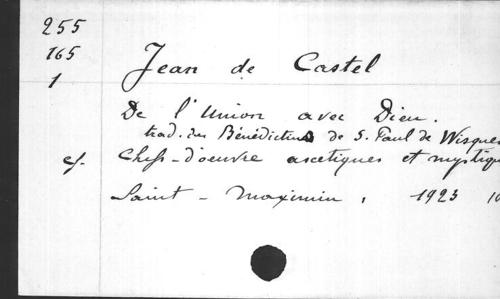 255
165
1
Jean de Castel
De l'Union avec Dieu.
trad. des Bénédictins de S. Paul de Wisques
cf. Chefs-d'oeuvre ascétiques et mystiqu
Saint-Maximin, 1923